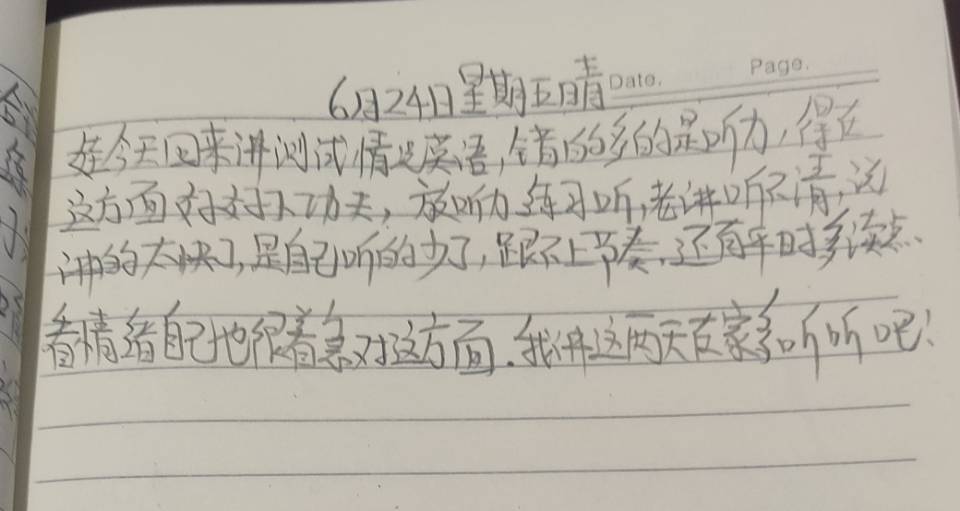 Date. Page.
6月24日星期五晴
娃今天回来讲测试情况英语,错的多的是听力,得在
这方面好好下功夫,放听力练习听,老讲听不清,说
讲的太快了,是自己听的少了,跟不上节奏.还有平时多读点.
看情绪自己也很着急对这方面.我讲这两天在家多听听吧!